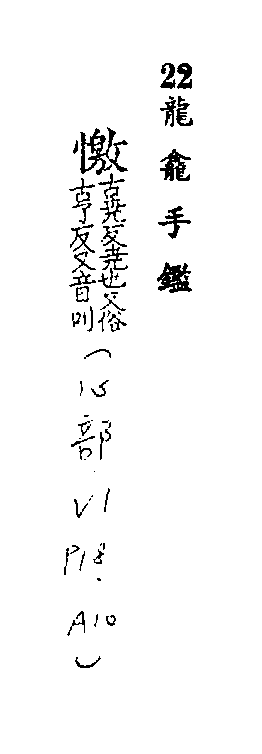 22龍龕手鑑
憿古堯反憿也又俗
古弔反又音叫
(心部.V1
P18.
A10)